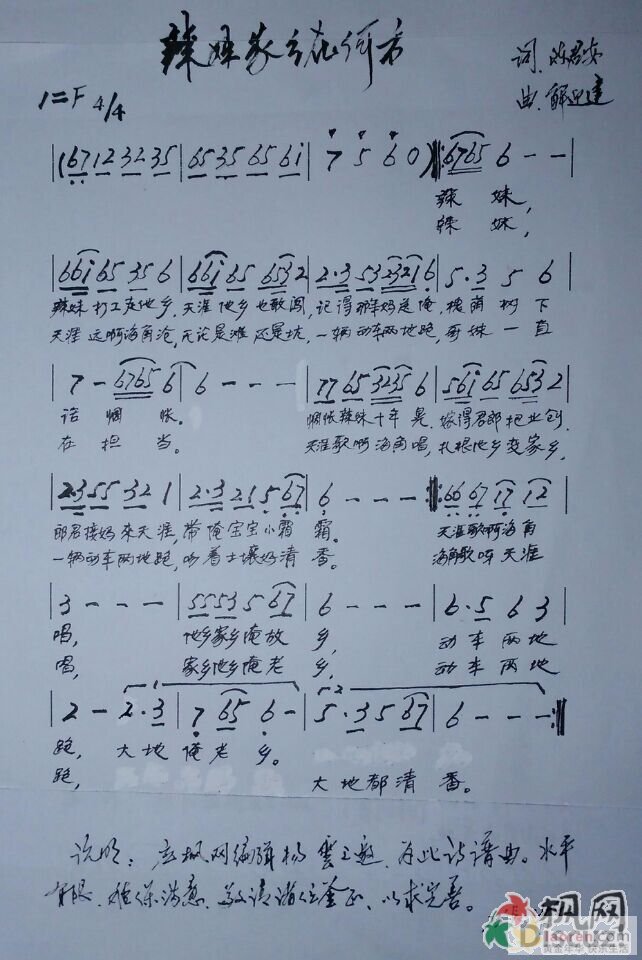 辣妹家乡在何方
词
曲:解
1=F 4/4
|(167 12 32 35|65 35 65 6i|7 5 6 0)‖:6765 6 - -|
辣 妹,
辣 妹,
|66i 65 35 6|66i 65 653 2|2·3 53 2321 6|5·3 5 6
辣妹打工走他乡,天涯他乡也敢闯,记得那年妈送俺,槐荫树下
天涯远啊海角沧,无论是滩还是坑,一辆动车两地跑,哥妹一直
|7 - 6765 6|6 - - -|77 65 3235 6|56i 65 653 2|
话惆怅。惆怅辣妹十年晃,嫁得君郎把业创,
在担当。天涯歌啊海角唱,扎根他乡变家乡,
|2·3 55 32 1|2·3 21 5 67|6 - - - :‖66 67 17 12
郎君接妈来天涯,带俺宝宝小霜霜。天涯歌啊海角
一辆动车两地跑,吻着土壤好清香。海角歌哮天涯
3 - - -|55 53 5 67|6 - - -|6·5 6 3
唱,他乡家乡俺故乡,动车两地
唱,家乡他乡俺老乡,动车两地
2 - 2·3|7 65 6 -|5·3 5 67|6 - - - :‖
跑,大地俺老乡。
跑,大地都清香。
说明:应枫网编辑杨雲之邀,为此诗谱曲。水平
有限,难保满意,敬请诸位金正,以求完善。
枫网